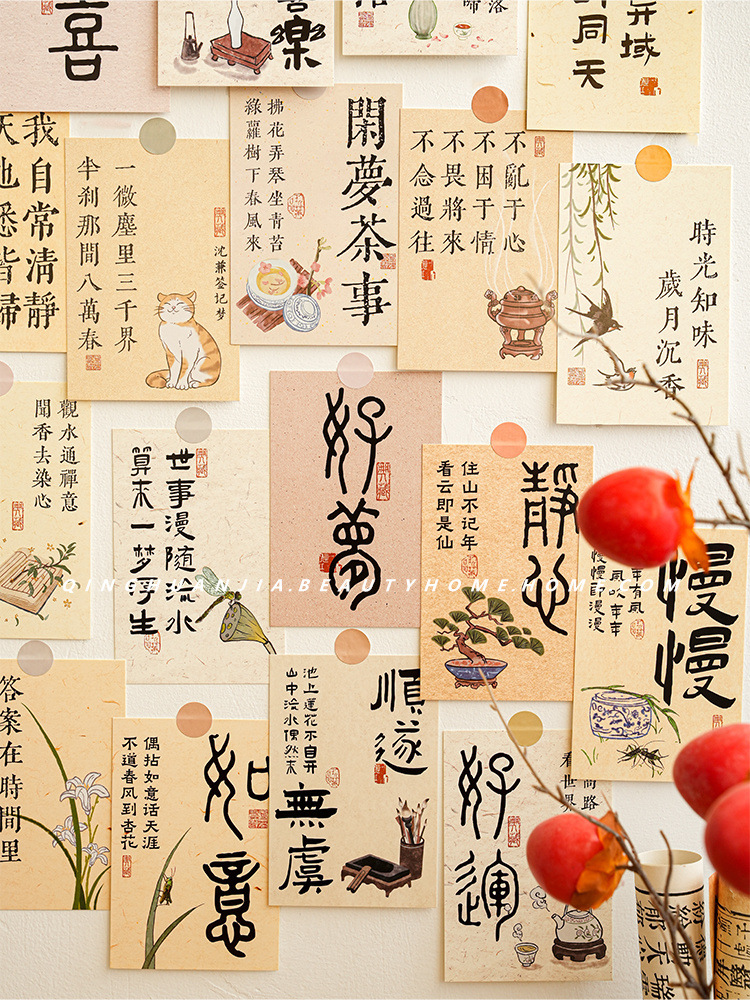 喜
樂
落
啼
異域
同天
我自常清靜
天地悉皆歸
一微塵里三千界
半刹那間八萬春
閑夢茶事
拂花弄琴坐青苔
綠蘿樹下春風來
不亂于心
不困于情
不畏將來
不念過往
時光知味
歲月沉香
觀水通禪意
聞香去染心
世事漫随流水
算来一梦浮生
好夢
靜心
住山不记年
看云即是仙
慢慢
慢慢即漫漫
答案在時間里
如意
偶拈如意话天涯
不道春风到杏花
順遂
無虞
池上莲花不自开
山中流水偶然来
好運
看世界
QINGHUANJIA.BEAUTYHOME.HOME.COM